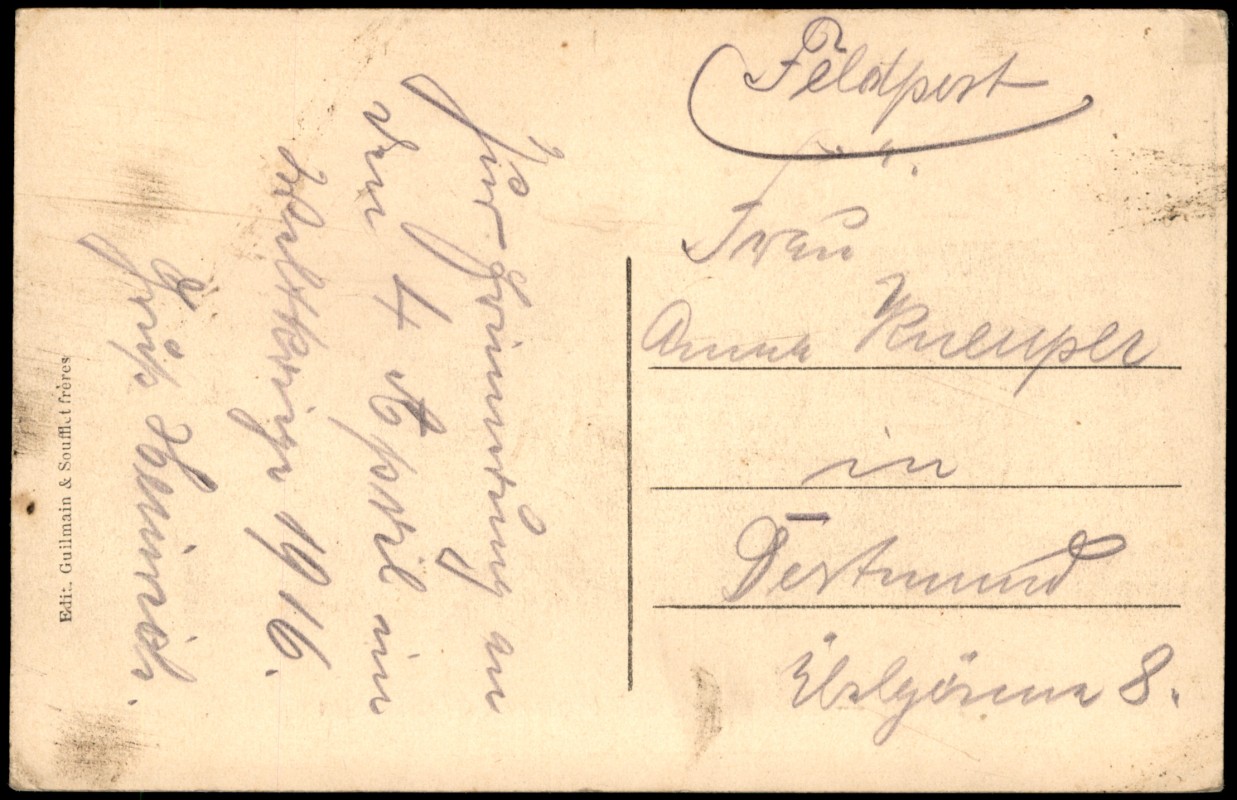 Feldpost
Frau
Anna Kneuper
in
Dortmund
8.
Zur Erinnerung an
den 4 April im
Weltkriege 1916.
Gruß Heinrich.
Edit. Guilmain & Soufflet frères